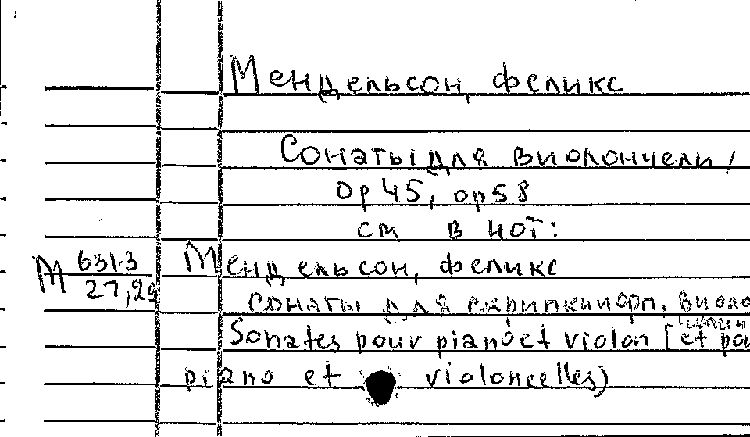 Мендельсон, феликс
Сонаты для виолончели,
ор 45, ор 58
см в нот:
М 631-3
27,29
Мендельсон, феликс
сонаты для скрипки и фп, виоло
нчели
Sonates pour piano et violon [et pou
piano et violoncelles)